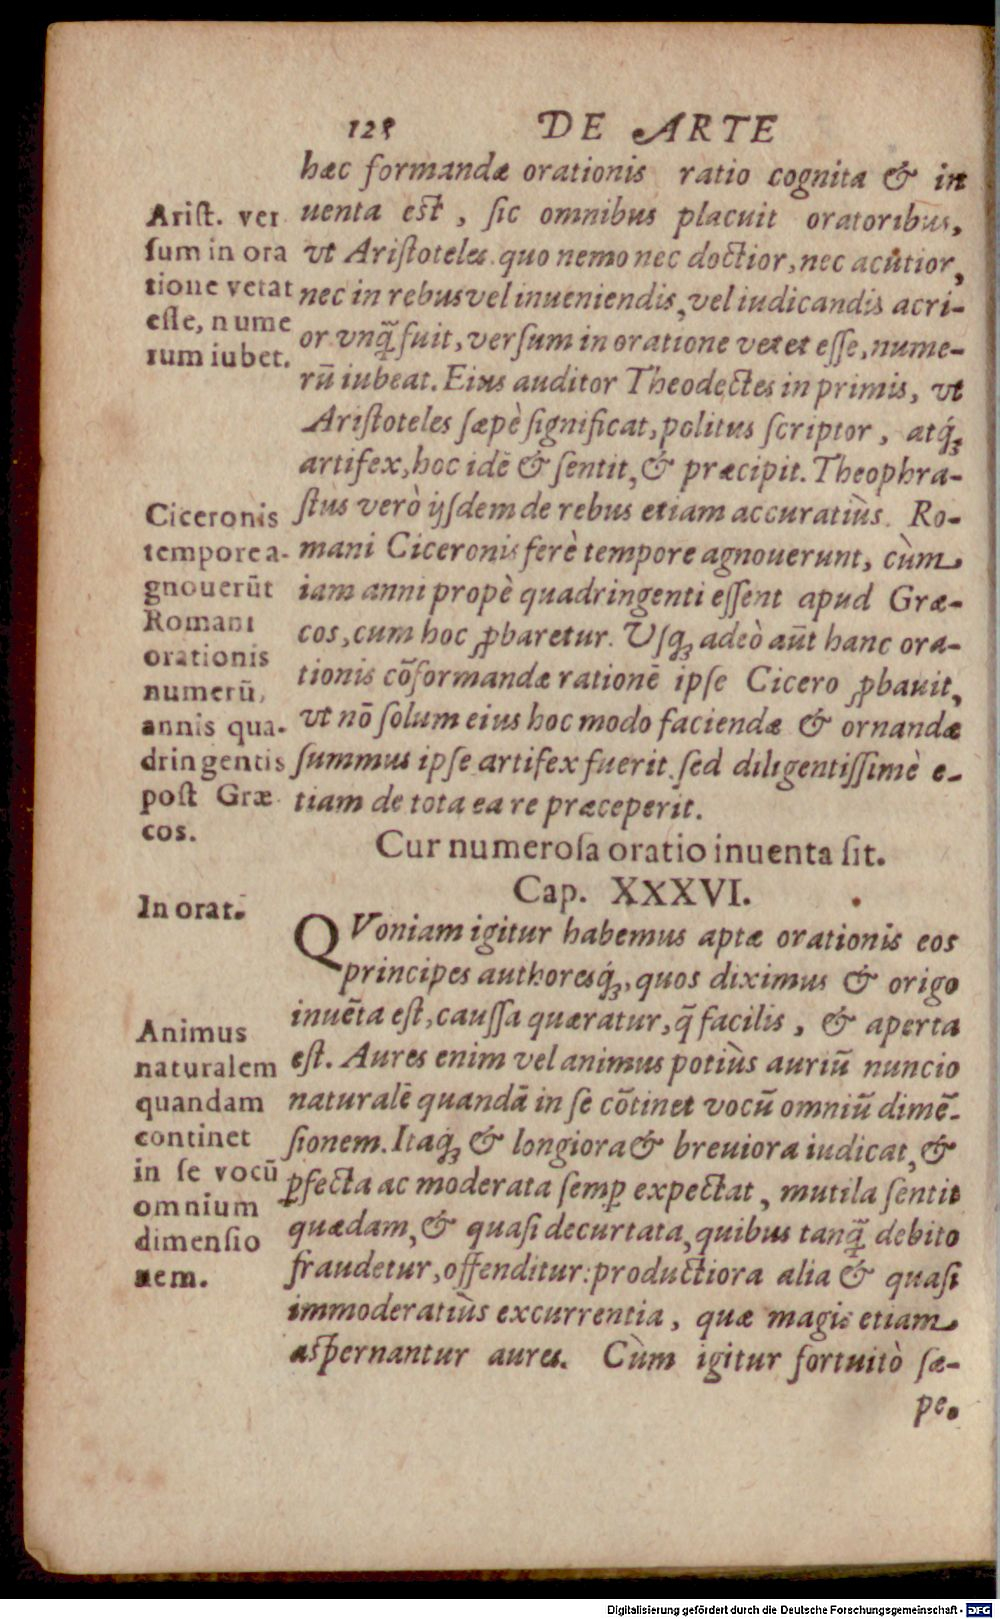 128 DE ARTE
hæc formandæ orationis ratio cognita & in
uenta est, sic omnibus placuit oratoribus,
vt Aristoteles quo nemo nec doctior, nec acutior,
nec in rebus vel inueniendis, vel iudicandis acri-
or vnq̃ fuit, versum in oratione vetet esse, nume-
rũ iubeat. Eius auditor Theodectes in primis, vt
Aristoteles sæpè significat, politus scriptor, atq́;
artifex, hoc idẽ & sentit, & præcipit. Theophra-
stus verò ijsdem de rebus etiam accuratiùs. Ro-
mani Ciceronis ferè tempore agnouerunt, cùm
iam anni propè quadringenti essent apud Græ-
cos, cum hoc ꝓbaretur. Vsq; adeò aũt hanc ora-
tionis cõformandæ rationẽ ipse Cicero ꝓbauit,
vt nõ solum eius hoc modo faciendæ & ornandæ
summus ipse artifex fuerit, sed diligentissimè e-
tiam de tota ea re præceperit.
Arist. ver
sum in ora
tione vetat
esse, nume
rum iubet.
Ciceronis
tempore a-
gnouerũt
Romani
orationis
numerũ,
annis qua-
dringentis
post Græ
cos.
Cur numerosa oratio inuenta sit.
Cap. XXXVI.
QVoniam igitur habemus aptæ orationis eos
principes authoresq́;, quos diximus & origo
inuẽta est, caussa quæratur, q̃ facilis, & aperta
est. Aures enim vel animus potiùs auriũ nuncio
naturalẽ quandã in se cõtinet vocũ omniũ dimẽ-
sionem. Itaq; & longiora & breuiora iudicat, &
ꝑfecta ac moderata semꝑ expectat, mutila sentit
quædam, & quasi decurtata, quibus tanq̃ debito
fraudetur, offenditur: productiora alia & quasi
immoderatiùs excurrentia, quæ magis etiam
aspernantur aures. Cùm igitur fortuitò sæ-
pe.
In orat.
Animus
naturalem
quandam
continet
in se vocũ
omnium
dimensio
nem.
Digitalisierung gefördert durch die Deutsche Forschungsgemeinschaft - DFG